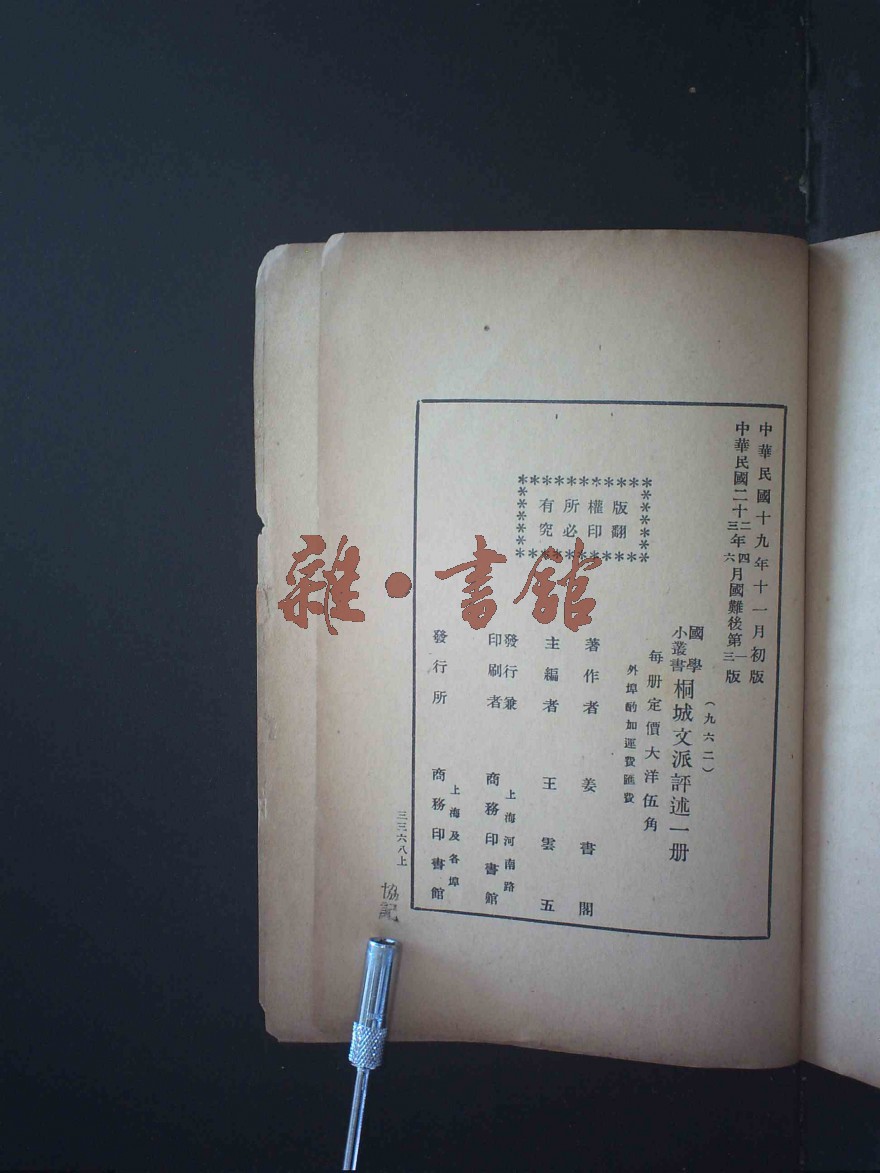 中華民國十九年十一月初版
中華民國二十二年四月國難後第一版
三六三
(九六二)
國學小叢書 桐城文派評述一册
每册定價大洋伍角
外埠酌加運費匯費
版權所有
翻印必究
著作者 姜書閣
主編者 王雲五
發行兼印刷者 上海河南路 商務印書館
發行所 上海及各埠 商務印書館
三三六八上
協記
雜·書館